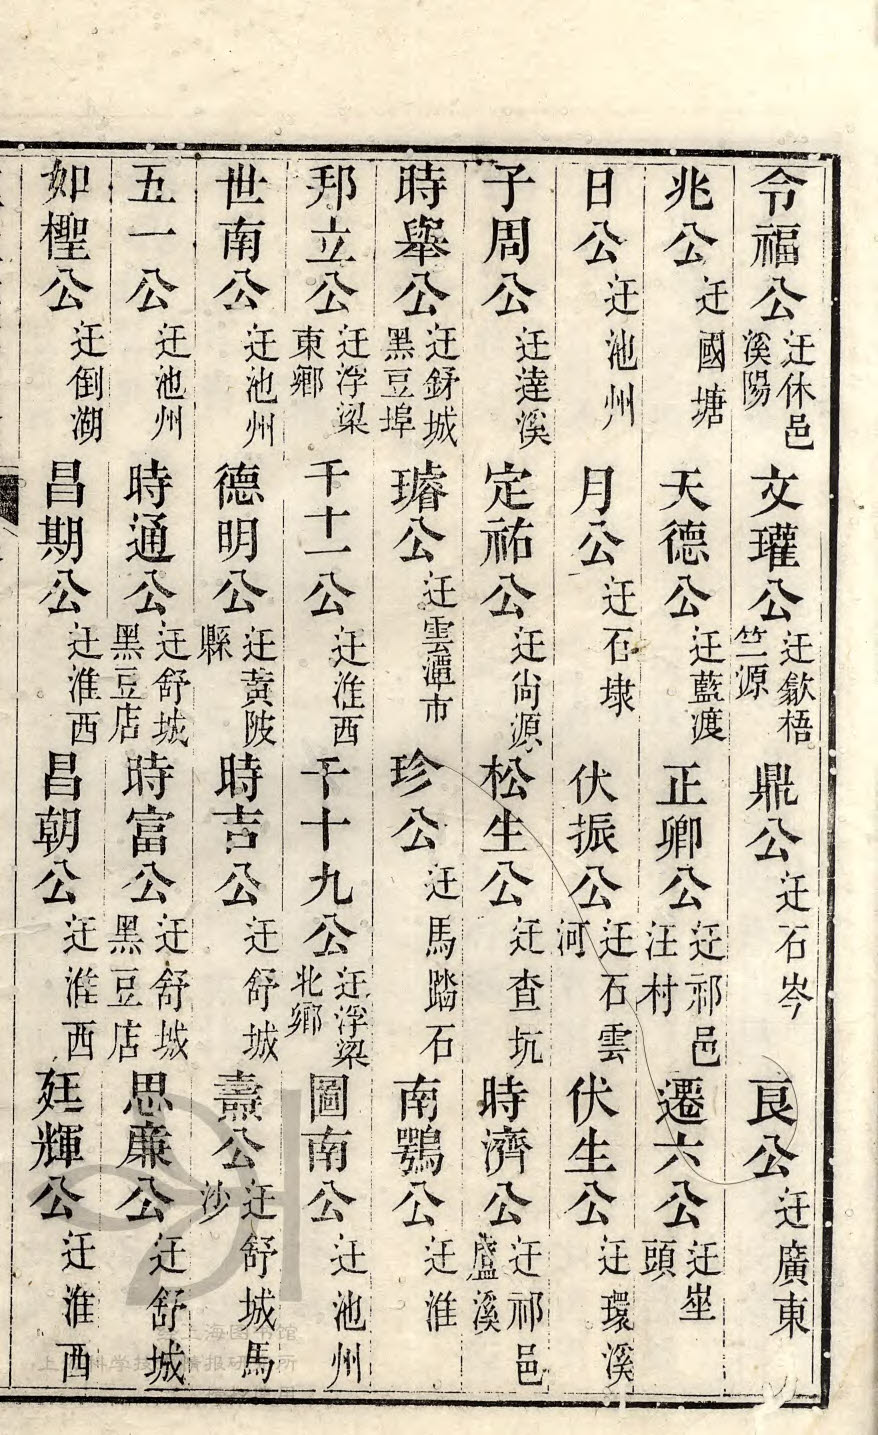 令福公 迁休邑溪陽 文瓘公 迁歙梧竺源 鼎公 迁石岑 良公 迁廣東
兆公 迁國塘 天德公 迁藍渡 正卿公 迁祁邑汪村 遷六公 迁坐頭
日公 迁池州 月公 迁石埭 伏振公 迁石雲河 伏生公 迁環溪
子周公 迁達溪 定祐公 迁尚源 松生公 迁查坑 時濟公 迁祁邑盧溪
時舉公 迁舒城黑豆埠 璿公 迁雲潭市 珍公 迁馬踏石 南鶚公 迁淮
邦立公 迁浮梁東鄉 千十一公 迁淮西 千十九公 迁浮梁北鄉 圖南公 迁池州
世南公 迁池州 德明公 迁黃陂縣 時吉公 迁舒城 壽公 迁舒城馬沙
五一公 迁池州 時通公 迁舒城黑豆店 時富公 迁舒城黑豆店 思廉公 迁舒城
如檉公 迁倒湖 昌期公 迁淮西 昌朝公 迁淮西 廷輝公 迁淮西
上海图书馆
上海科学技术情报研究所